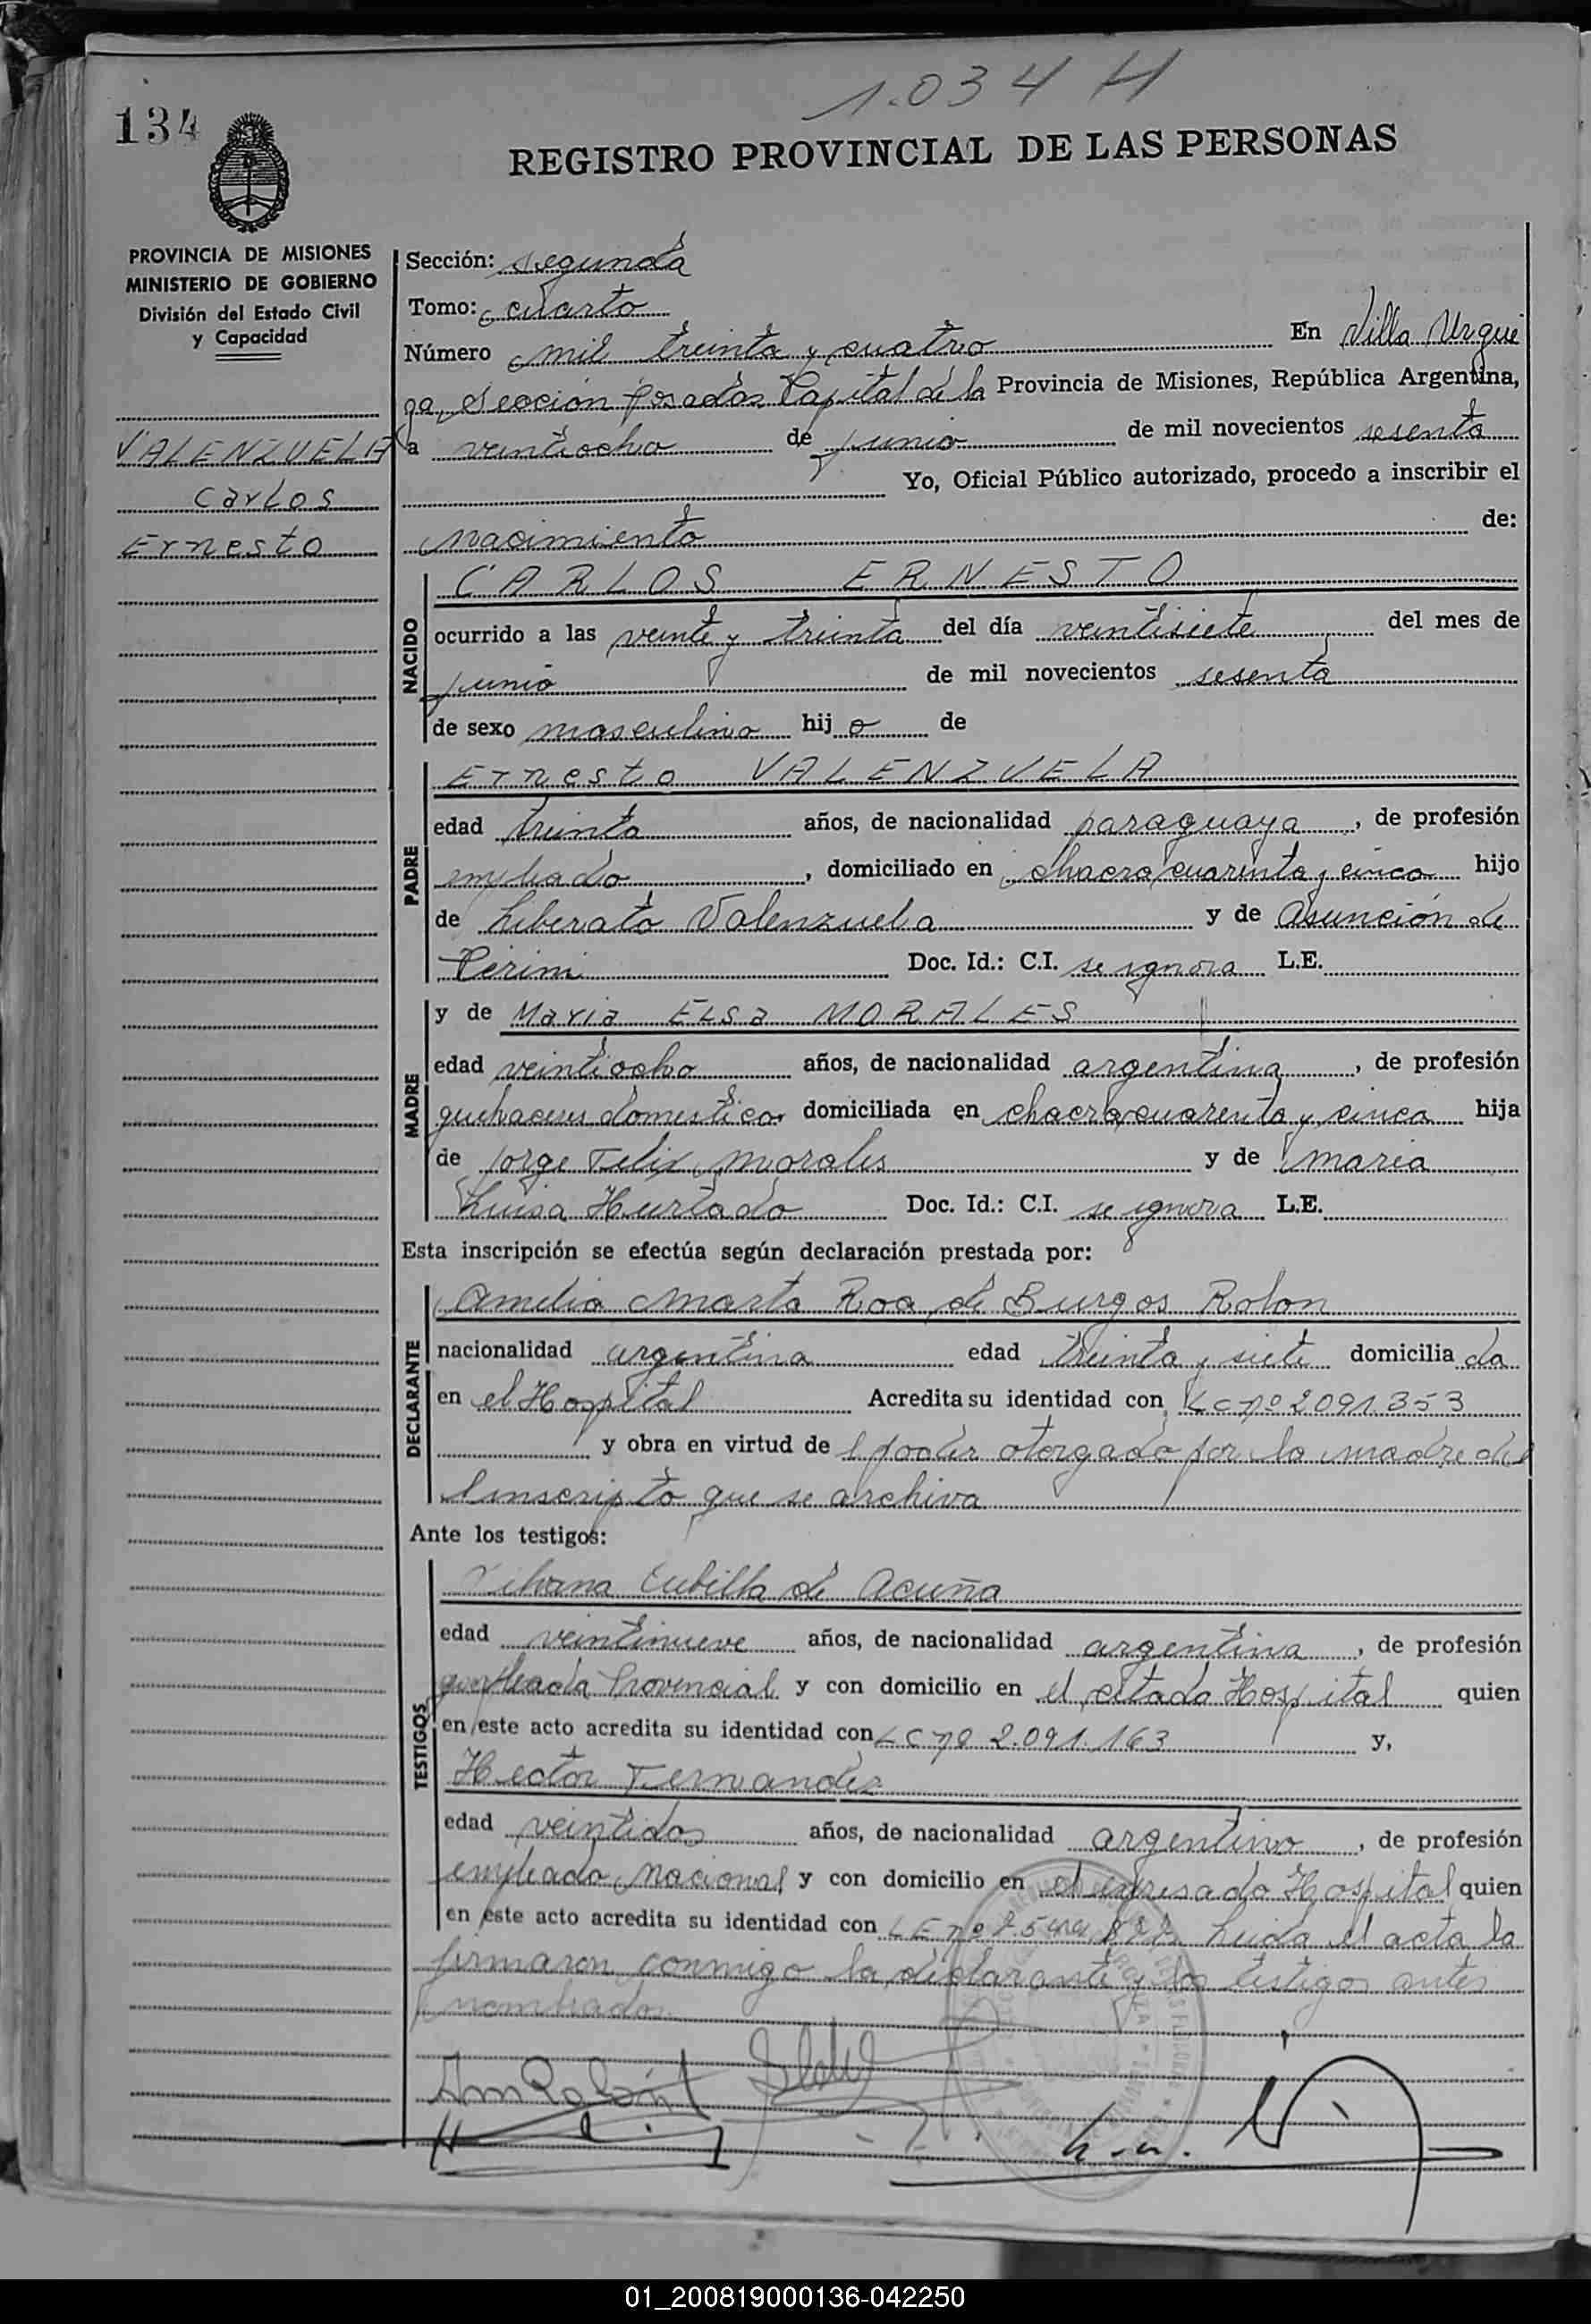 1.034 H
134
REGISTRO PROVINCIAL DE LAS PERSONAS
PROVINCIA DE MISIONES
MINISTERIO DE GOBIERNO
División del Estado Civil
y Capacidad
VALENZUELA
Carlos
Ernesto
Sección: segunda
Tomo: cuarto
Número mil treinta y cuatro En Villa Urqui
ga, Sección Posadas Capital de la Provincia de Misiones, República Argentina,
a veintiocho de junio de mil novecientos sesenta
Yo, Oficial Público autorizado, procedo a inscribir el
nacimiento de:
NACIDO
CARLOS ERNESTO
ocurrido a las veinte y treinta del día veintisiete del mes de
junio de mil novecientos sesenta
de sexo masculino hijo de
PADRE
Ernesto VALENZUELA
edad treinta años, de nacionalidad paraguaya, de profesión
empleado, domiciliado en chacra cuarenta y cinco hijo
de Liberato Valenzuela y de Asunción de
Perini Doc. Id.: C.I. se ignora L.E.
MADRE
y de Maria Elsa MORALES
edad veintiocho años, de nacionalidad argentina, de profesión
quehaceres domesticos domiciliada en chacra cuarenta y cinco hija
de Jorge Felix Morales y de Maria
Luisa Hurtado Doc. Id.: C.I. se ignora L.E.
Esta inscripción se efectúa según declaración prestada por:
DECLARANTE
Amelia Marta Roa de Burgos Rolon
nacionalidad argentina edad treinta y siete domiciliada
en el Hospital Acredita su identidad con LC nº 2091.353
y obra en virtud de l poder otorgado por la madre de
l inscripto que se archiva
Ante los testigos:
TESTIGOS
Cubilla de Acuña
edad veintinueve años, de nacionalidad argentina, de profesión
empleada Provincial y con domicilio en el citado Hospital quien
en este acto acredita su identidad con LC nº 2.091.163 y,
Hector Fernandez
edad veintidos años, de nacionalidad argentino, de profesión
empleado Nacional y con domicilio en el expresado Hospital quien
en este acto acredita su identidad con LE nº Leida el acta la
firmaron conmigo la declarante y los testigos antes
nombrados
01_200819000136-042250